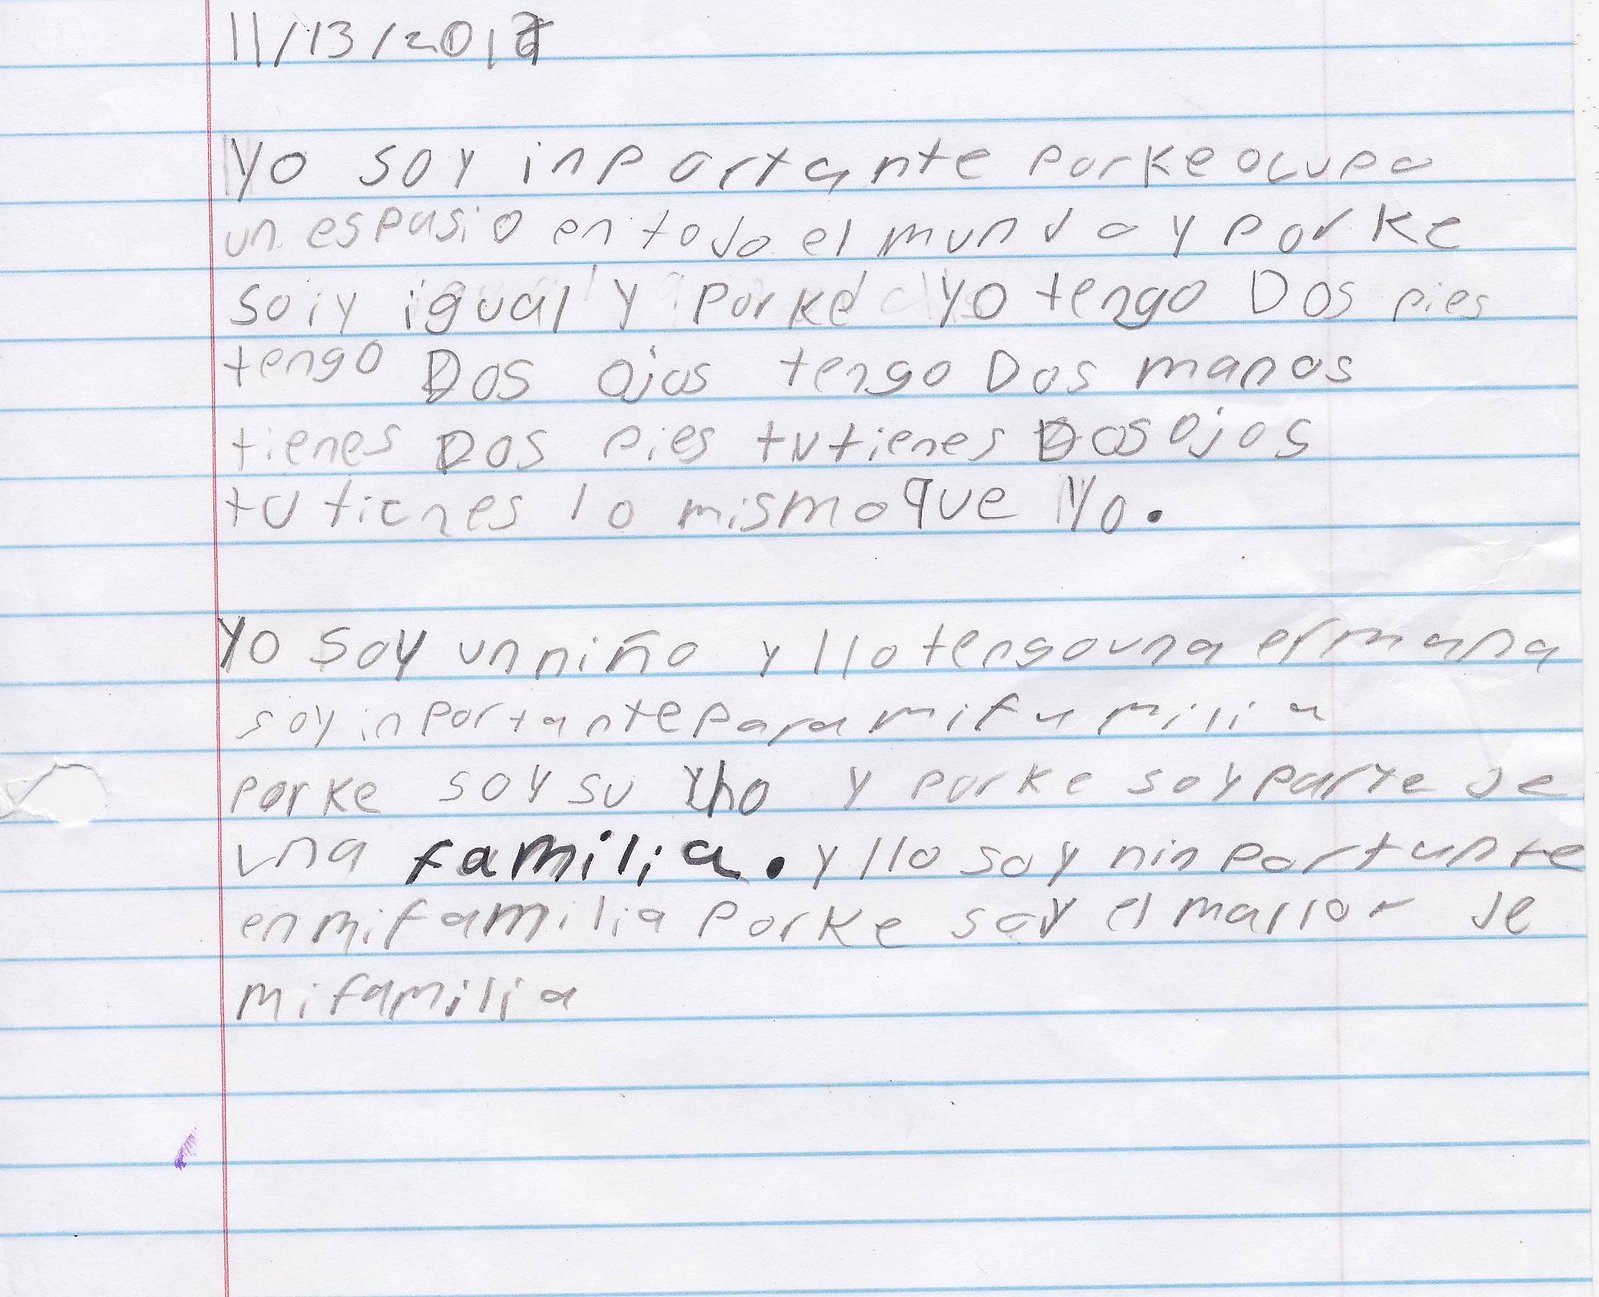 11/13/201
Yo soy inportante porke ocupo
un espasio en todo el mundo y porke
soiy igual y porke yo tengo Dos pies
tengo Dos ojos tengo Dos manos
tienes Dos pies tu tienes Dos ojos
tu tienes lo mismo que Yo.
Yo soy un niño y llo tengo una ermana
soy inportante para mi familia
porke soy su y porke soy parte de
una familia. y llo soy ninportante
en mi familia porke soy el mallor de
mi familia